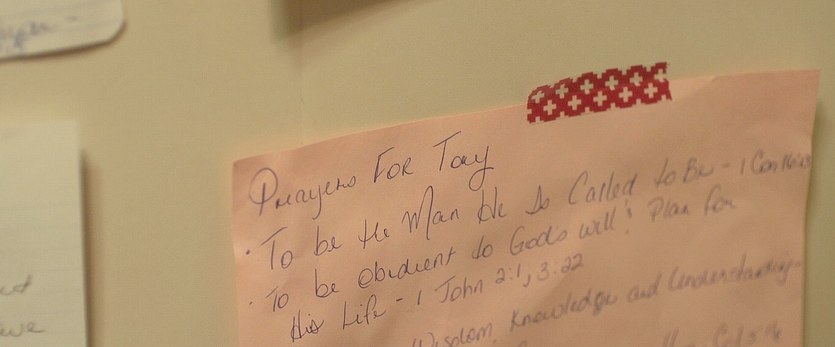 Prayers For Tay
· To be the Man He Is Called to Be - 1 Corinthians
· To be obedient to Gods will & Plan for
His Life - 1 John 2:1, 3:22
Wisdom, Knowledge and Understanding-